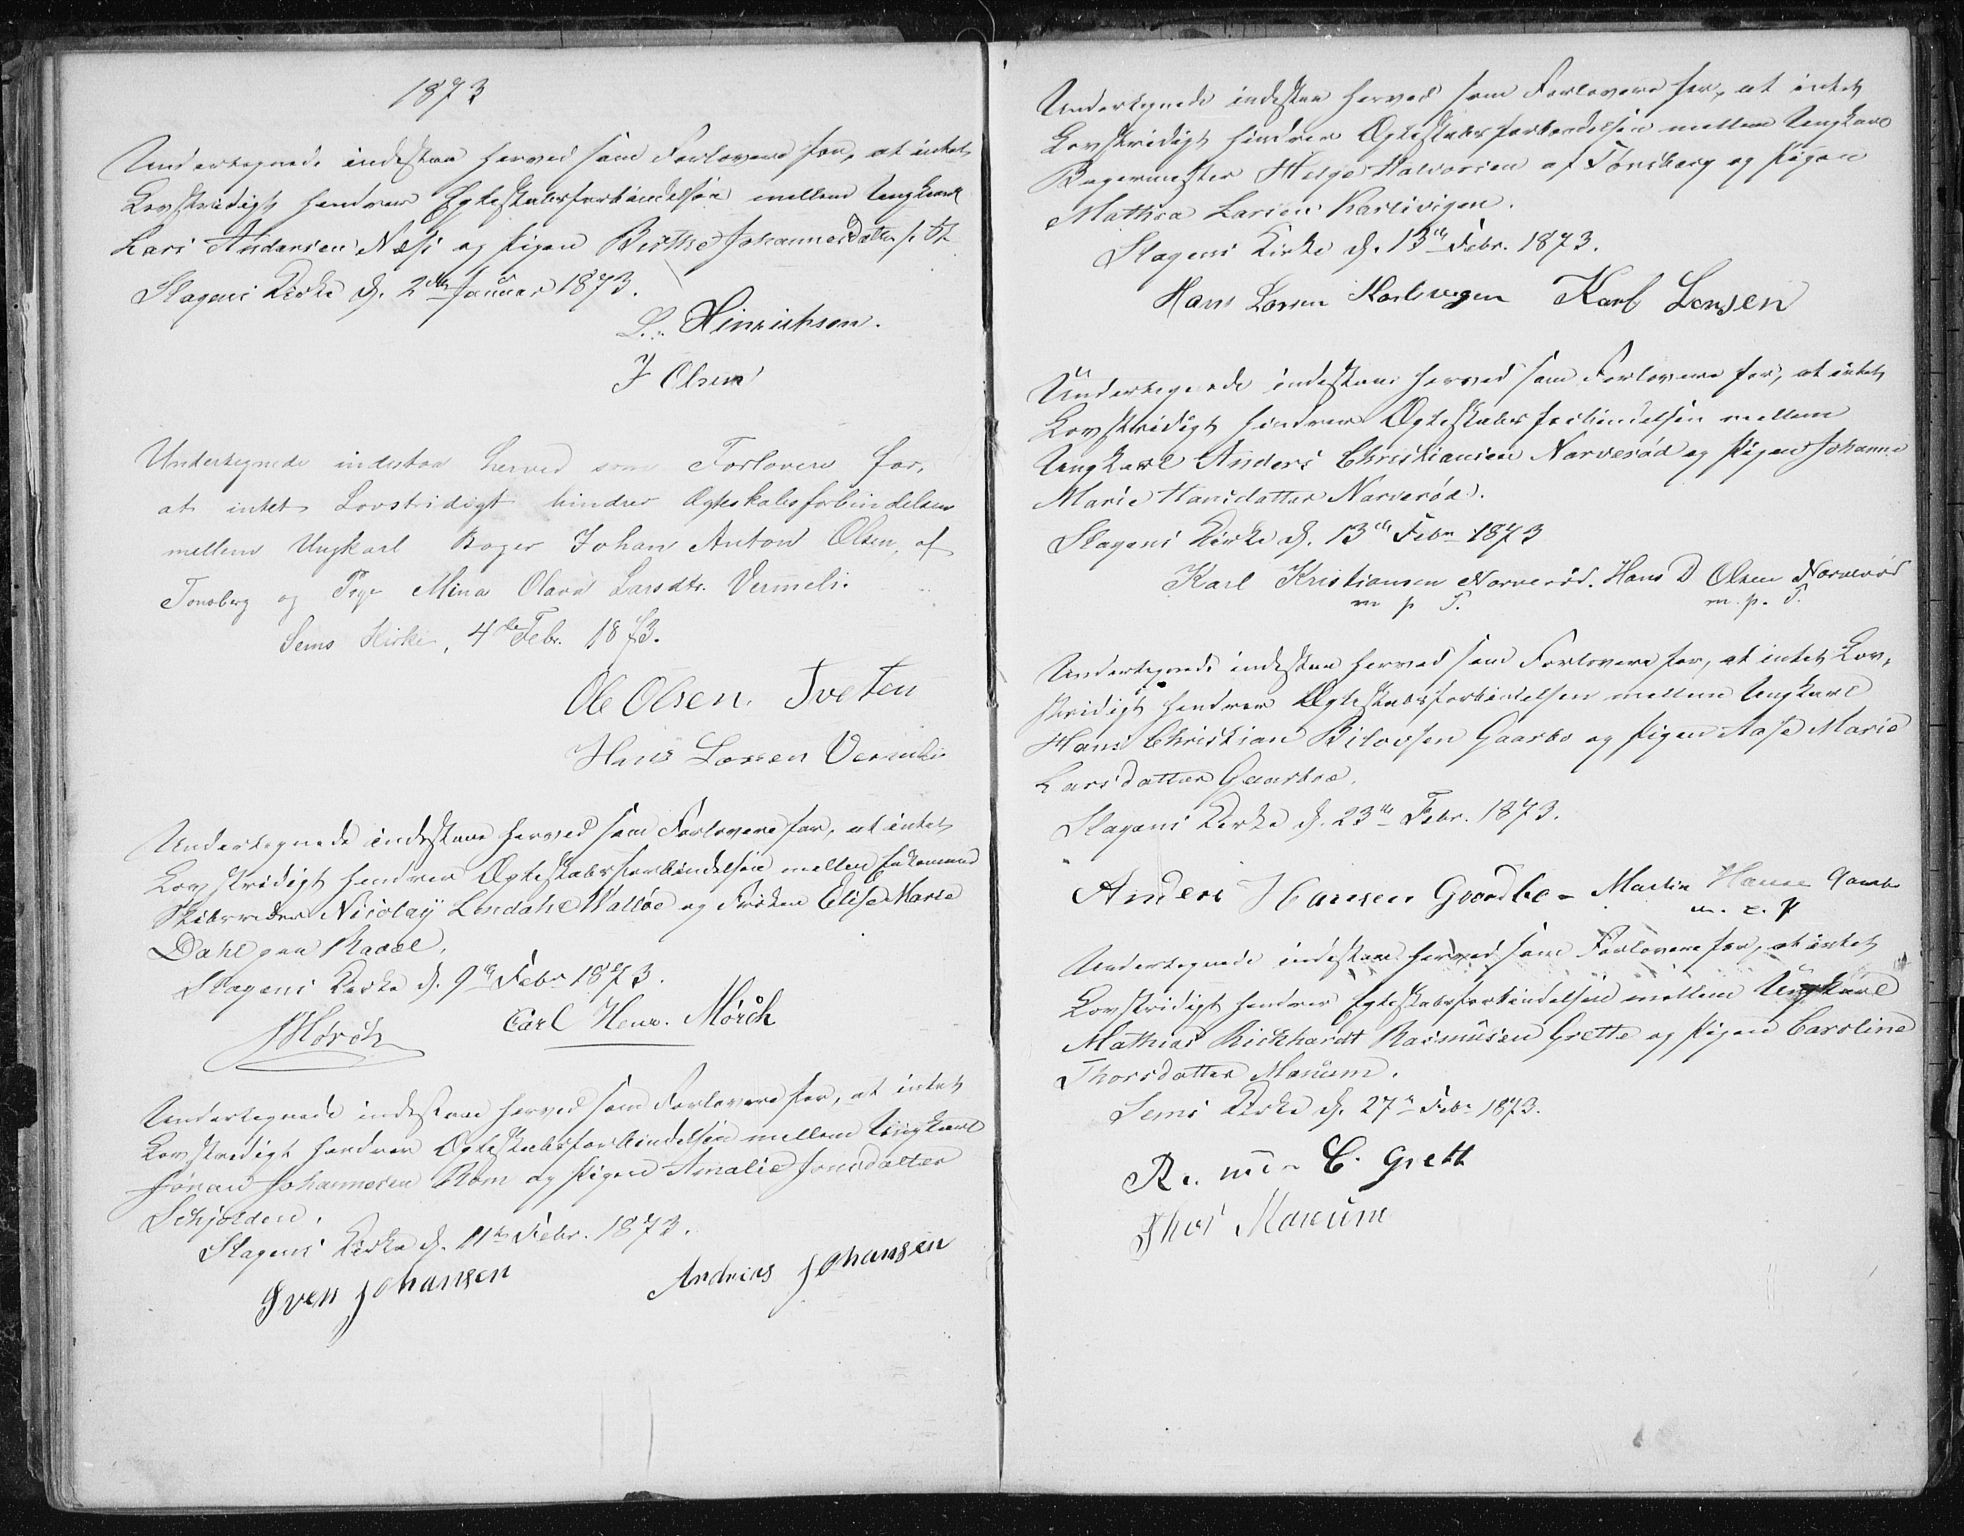 1873
Undertegnede indestaa herved som Forlovere for, at intet
Lovstridigt hindrer Egteskabsforbindelsen mellem Ungkarl
Lars Andersen Næs og Pigen Birthe Johannesdatter
Slagens Kirke d. 2den Januar 1873.
L. Hinrichsen.
J Olsen
Undertegnede indestaa herved som Forlovere for,
at intet Lovstridigt hindrer Ægteskabsforbindelsen
mellem Ungkarl Bager Johan Anton Olsen, af
Tønsberg og Pige Mina Olava Larsdtr. Vermeli.
Sems Kirke, 4de Febr. 1873.
Ole Olsen. Tveten
Hans Larsen Vermeli
Undertegnede indestaae herved som Forlovere for, at intet
Lovstridigt hindrer Ægteskabsforbindelsen mellem Enkemand
Skibsreder Nicolay Lindahl Walløe og Frøken Elise Marie
Dahl paa Ravel.
Slagens Kirke d. 9de Febr 1873.
Mørch Carl Henr. Mørch
Undertegnede indestaae herved som Forlovere for, at intet
Lovstridigt hindrer Ægteskabsforbindelsen mellem Ungkarl
Johannesen Rom og Pigen Amalie Jonsdatter
Schjølden.
Slagens Kirke d. 11te Febr. 1873.
Sven Johansen Andreas Johansen
Undertegnede indestaa herved som Forlovere for, at intet
Lovstridigt hindrer Ægteskabsforbindelsen mellem Ungkarl
Bagermester Helge Halvorsen af Tønsberg og Pigen
Mathea Larsen Karlsvigen.
Slagens Kirke d. 13de Febr. 1873.
Hans Larsen Karlsvigen Karl Larsen
Undertegnede indestaae herved som Forlovere for, at intet
Lovstridigt hindrer Ægteskabsforbindelsen mellem
Ungkarl Anders Christiansen Narverød og Pigen Johanne
Marie Hansdatter Narverød.
Slagens Kirke d. 13de Febr 1873
Karl Kristiansen Narverød. Hans D Olsen Narverød
m p P. m. p. P.
Undertegnede indestaae herved som Forlovere for, at intet Lov-
stridigt hindrer Ægteskabsforbindelsen mellem Ungkarl
Hans Christian Gaarbo og Pigen Aase Marie
Larsdatter Gaarboe.
Slagens Kirke d. 23de Febr. 1873.
Anders Hansen Gaardbo - Martin Hansen Gaarbo
Undertegnede indestaae herved som Forlovere for, at intet
Lovstridigt hindrer Egteskabsforbindelsen mellem Ungkarl
Mathias Rickhardt Rasmussen Grette og Pigen Caroline
Thorsdatter Manum.
Sems Kirke d. 27de Febr 1873.
C. Grett
Thor Manum